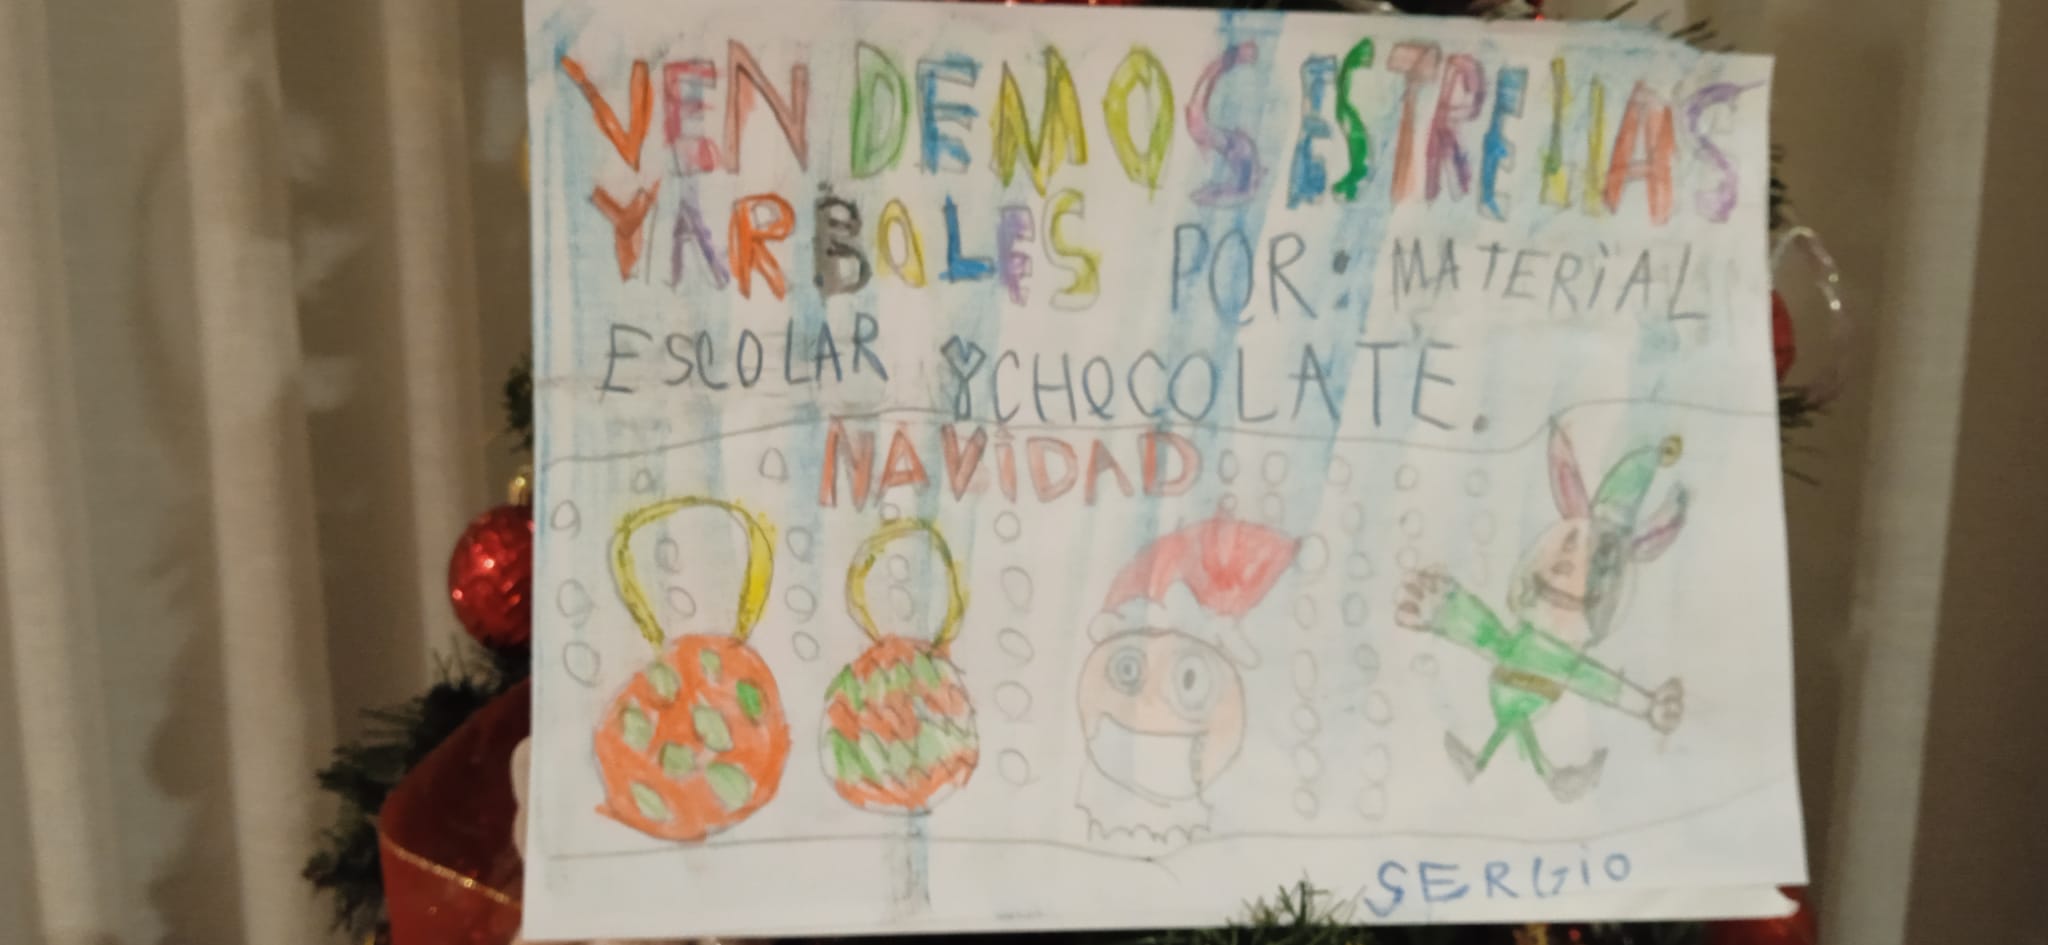 VENDEMOS ESTRELLAS
Y ARBOLES POR: MATERIAL
ESCOLAR Y CHOCOLATE.
NAVIDAD
SERGIO